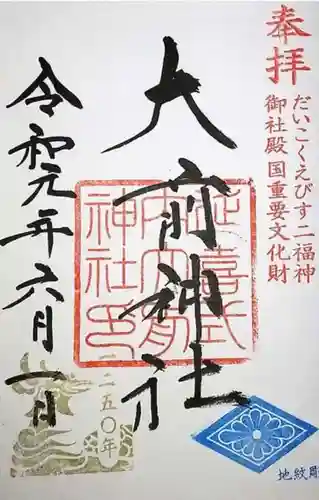 奉拝
だいこくえびす二福神
御社殿国重要文化財
大前神社
延喜式
内大前
神社印
令和元年六月一日
一二五〇年
地紋彫